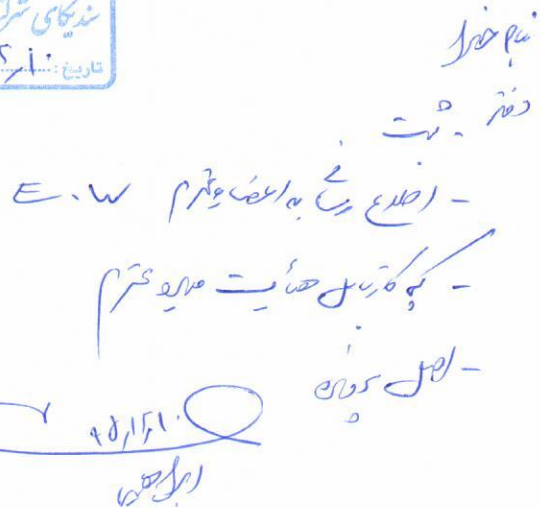 سندیکای شرکت
تاریخ:
بنام خدا
دفتر - ثبت
- اطلاع رسانی به اعضا محترم E.W
- کپی کارتابل هیأت مدیره محترم
- اصل پرونده